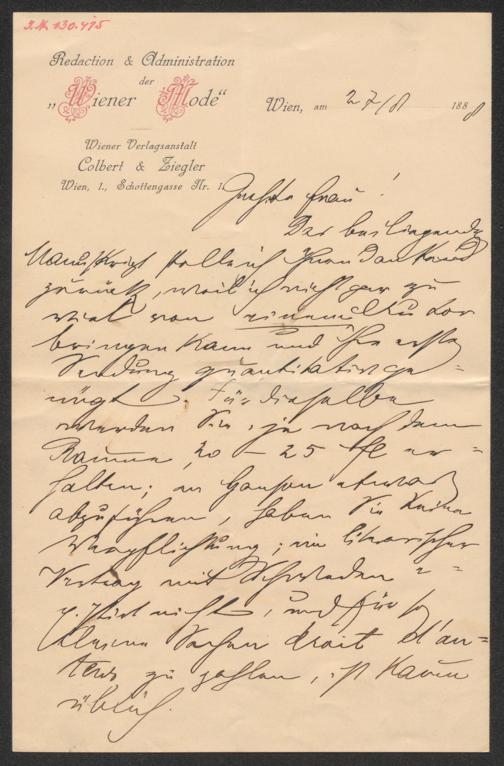 I.N. 130.475
Redaction & Administration
der
„Wiener Mode“
Wiener Verlagsanstalt
Colbert & Ziegler
Wien, I., Schottengasse Nr. 1.
Wien, am 27/8 1888
Geehrte Frau!
Das beiliegende
Manuskript stelle ich Ihnen dankend
zurück, weil ich nicht gar zu
viel von einem Autor
bringen kann und die erste
Sendung quantitativ ge-
nügt. Für dieselbe
werden Sie, je nach dem
Raume 20 – 25 fl er-
halten; an Hanson etwas
abzuführen, haben Sie keine
Verpflichtung; ein literarischer
Vertrag mit Schweden
existirt nicht, und für so
kleine Sachen droit d'au-
teur zu zahlen, ist kaum
üblich.